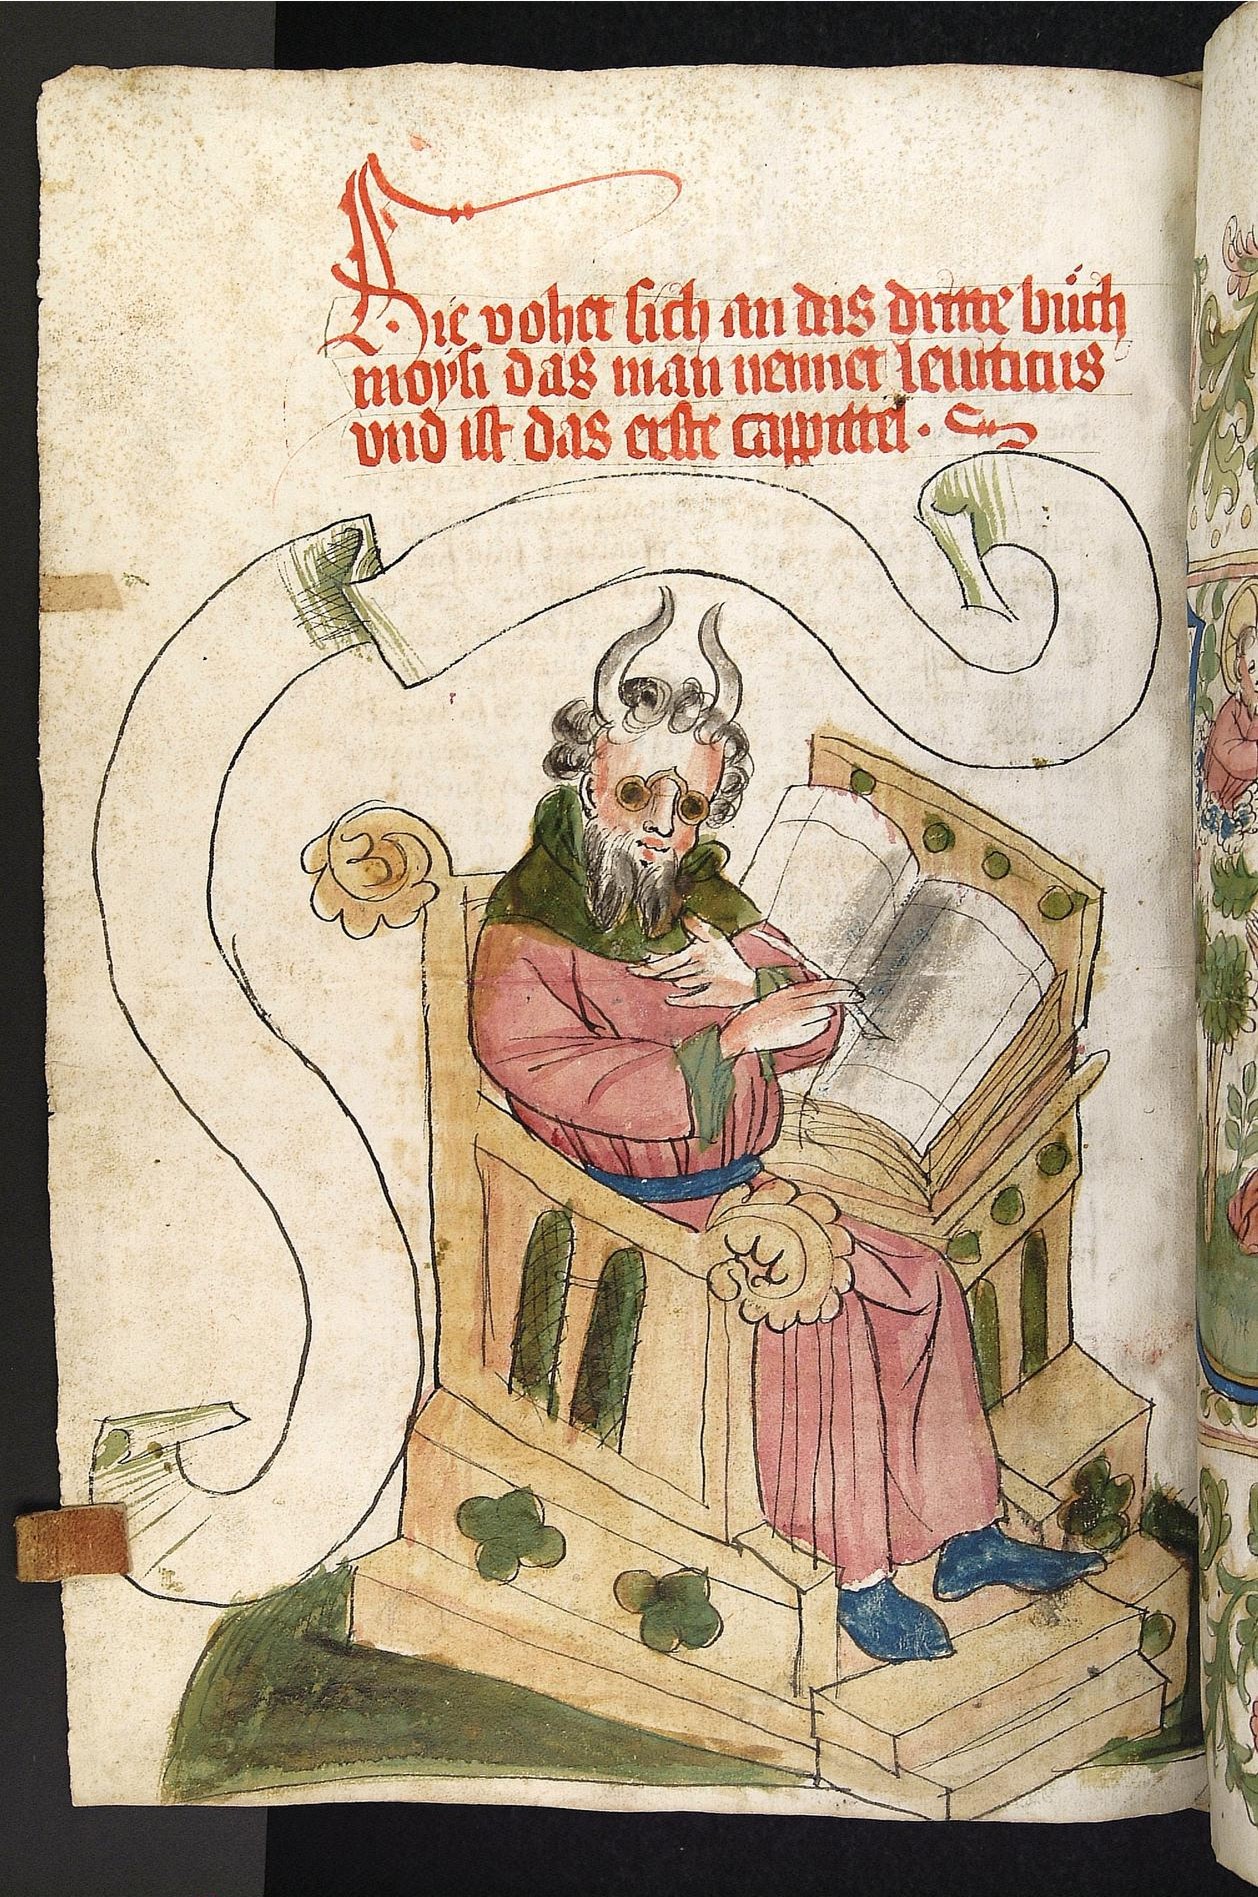 Hie vohet sich an das dritte bůch
moysi das man nennet leuiticus
vnd ist das erste cappittel ·